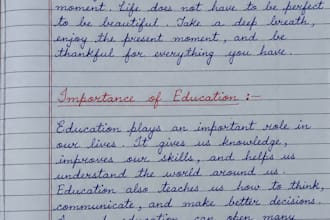 moment. Life does not have to be perfect
to be beautiful. Take a deep breath,
enjoy the present moment, and be
thankful for everything you have.
Importance of Education :-
Education plays an important role in
our lives. It gives us knowledge,
improves our skills, and helps us
understand the world around us.
Education also teaches us how to think,
communicate, and make better decisions.
education can open many